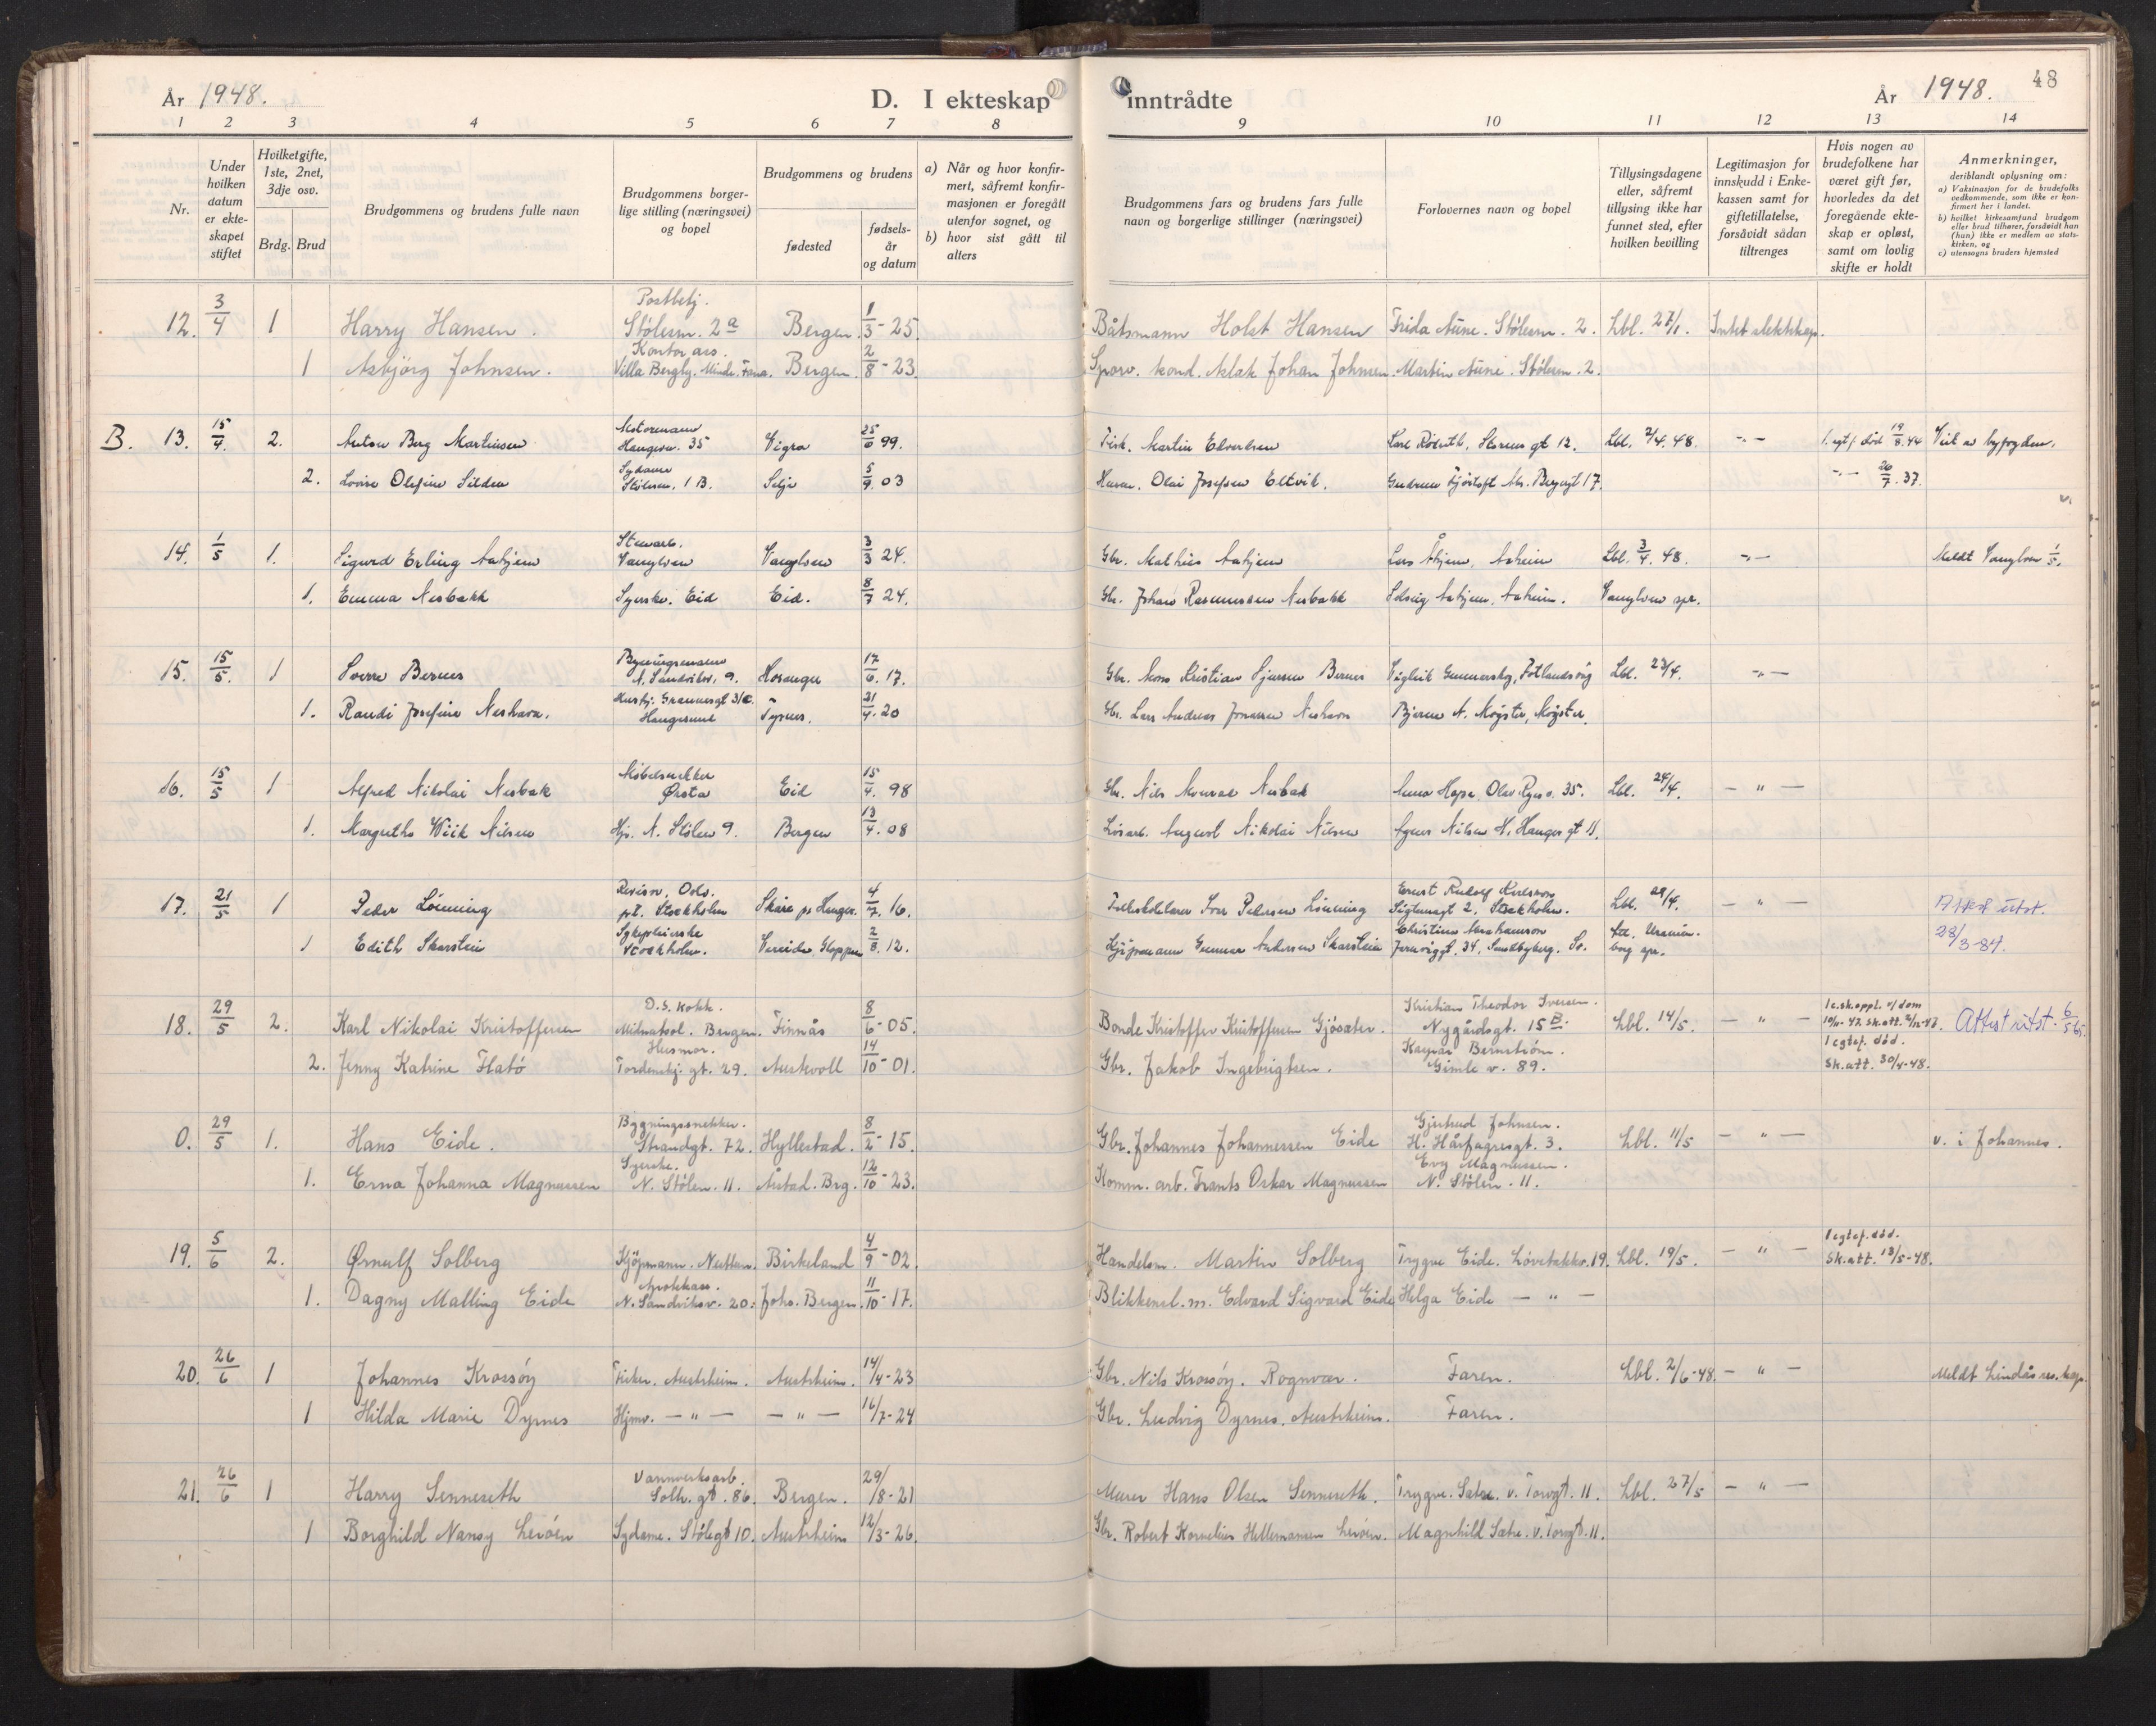 År 1948. D. I ekteskap inntrådte År 1948. 48
1 2 3 4 5 6 7 8 9 10 11 12 13 14
Nr.
Under hvilken datum er ekteskapet stiftet
Hvilket gifte, 1ste, 2net, 3dje osv.
Brdg. Brud
Brudgommens og brudens fulle navn
Brudgommens borgerlige stilling (næringsvei) og bopel
Brudgommens og brudens
fødested
fødselsår og datum
a) Når og hvor konfirmert, såfremt konfirmasjonen er foregått utenfor sognet, og
b) hvor sist gått til alters
Brudgommens fars og brudens fars fulle navn og borgerlige stillinger (næringsvei)
Forlovernes navn og bopel
Tillysingsdagene eller, såfremt tillysing ikke har funnet sted, efter hvilken bevilling
Legitimasjon for innskudd i Enkekassen samt for giftetillatelse, forsåvidt sådan tiltrenges
Hvis nogen av brudefolkene har været gift før, hvorledes da det foregående ekteskap er opløst, samt om lovlig skifte er holdt
Anmerkninger, deriblandt oplysning om:
a) Vaksinasjon for de brudefolks vedkommende, som ikke er konfirmert her i landet.
b) hvilket kirkesamfund brudgom eller brud tilhører, forsåvidt han (hun) ikke er medlem av statskirken, og
c) utensogns bruders hjemsted
12. 3/4 1 Harry Hansen. Postbetj. Stølesm. 2a Bergen. 1/3-25. Båtsmann Holst Hansen Frida Aune. Stølesm. 2. Lbl. 27/1. Intet slektskap.
1 Asbjørg Johnsen. Kontorass. Villa Bergly. Minde. Fana. Bergen. 2/8-23. Sporv. kond. Aslak Johan Johnsen. Martin Aune. Stølesm. 2.
B. 13. 15/4. 2. Anton Berg Martinsen Motormann Haugev. 35 Vigra 25/6 99. Fisk. Martin Edvardsen Lbl. 2/4.48. -"- 1. egtf. død 19/8.44
2. Lovise Olefine Silden Sydame Stølesm. 1 B. Selje 5/9.03 Olai Josefsen Eltvik. -"- 26/7.37.
14. 1/5 1. Sigurd Erling Aahjem Vanylven Vanylven 3/3 24. Gbr. Mathias Aahjem Lars Åhjem, Aaheim Lbl. 3/4.48. -"- Meldt Vanylven 1/5.
1. Emma Nesbakk Syerske. Eid Eid. 8/7 24. Gbr. Johan Rasmussen Nesbakk Solveig Aahjem, Aaheim. Vanylven spr.
15. 15/5. 1 Sverre Bernes N. Sandviksv. 9. Hosanger 17/6.17. Gbr. Mons Kristian Bernes Lbl. 23/4. -"-
1. Randi Josefine Neshavn. Haugesund Tysnes. 21/4.20 Gbr. Lars Andreas Neshavn
16. 15/5 1 Alfred Nikolai Nesbak Møbelsnekker Ørsta Eid 15/4. 98 Gbr. Nils Nesbak Anna Hope, Olav Ryesv. 35. Lbl. 24/4. - " -
1. Margrethe Wiik Nilsen Hjv. N. Stølen 9. Bergen 13/4.08 Løsarb. August Nikolai Nilsen Agnes Nilsen H. Hauges gt 11.
17. 21/5 1 Peder Lönning Revisor, Oslo. pt. Stockholm Skåre pr Hauges. 4/7 16. Folkeskolelærer Ivar Pedersen Lönning Ernst Rudolf Karlsson Sigtunagt 2. Stockholm. Lbl. 29/4. - " - Attest utst.
1 Edith Skarstein Sykepleierske Stockholm. Vereide Gloppen 2/8.12. Kjøpmann Gunnar Andersen Skarstein Christina Abrahamson 34, Sundbyberg. Sv. 28/3-84.
18. 29/5 2. Karl Nikolai Kristoffersen D.S. kokk. Midnatsol. Bergen. Finnås 8/6-05. Bonde Kristoffer Kristoffersen Gjøsæter. Kristian Theodor Iversen. Nygårdsgt. 15 B. Lbl. 14/5. - " - 1 e.sk. oppl. v/ dom Attest utst. 6/5 65.
2. Jenny Katrine Flatø Husmor. Tordenskj. gt. 29. Austevoll 14/10-01. Gbr. Jakob Ingebrigtsen. Bernstrøm. Gimle v. 89. 1 egtef. død. Sk.att. 30/4-48.
0. 29/5 1. Hans Eide. Bygningssnekker. Strandgt. 72. Hyllestad. 8/2-15. Gbr. Johannes Johannessen Eide Gjertrud Johnsen. H. Hårfagresgt. 3. Lbl. 11/5 - " - v. i Johannes.
1. Erna Johanna Magnussen Syerske. N. Stølen. 11. Årstad. Brg. 12/10-23. Komm. arb. Frants Oskar Magnussen Evy Magnussen. N. Stølen. 11.
19. 5/6 2. Ørnulf Solberg Kjøpmann. Nesttun. Birkeland 4/9-02. Handelsm. Martin Solberg Trygve Eide. Løvstakkv. 19. Lbl. 19/5. - " - 1 egtef. død. Sk.att. 13/5-48.
1. Dagny Malling Eide N. Sandviksv. 20. Johs. Bergen. 11/10-17. Blikkensl. m. Edvard Sigvard Eide Helga Eide - " -
20. 26/6 1 Johannes Krossøy Fisker. Austrheim. Austrheim. 14/4-23 Gbr. Nils Krossøy. Rognvær. Faren. Lbl. 2/6-48. - " - Meldt Lindås res. kap.
1 Hilda Marie Dyrnes Hjmv. - " - - " - 16/7-24 Gbr. Ludvig Dyrnes. Austrheim. Faren.
21. 26/6 1 Harry Senneseth Vannverksarb. Solh. gt. 86. Bergen. 29/8-21 Murer Hans Olsen Senneseth. Trygve Sætre. v. Torvgt. 11. Lbl. 27/5 - " -
1 Borghild Nansy Lerøen Sydame. Stølegt 10. Austrheim 12/3-26. Gbr. Robert Kornelius Hellemansen Lerøen. Magnhild Sætre. v. Torvgt. 11.